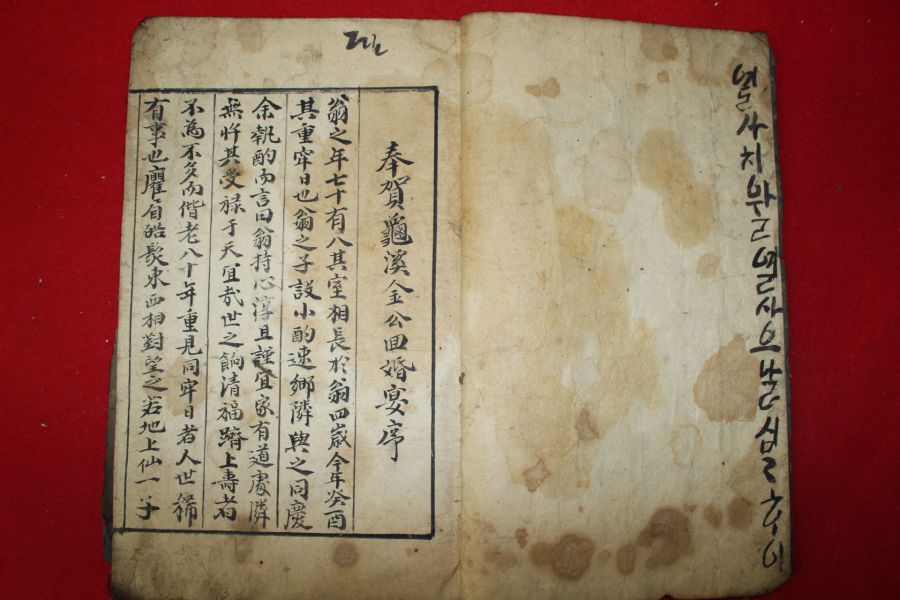 열사치
奉賀龜溪金公回婚宴序
翁之年七十有八其室相長於翁四歲今年癸酉
其重牢日也翁之子設小酌速鄉隣與之同慶
余執酌而言曰翁持心淳且謹宜家有道處隣
無忤其受祿于天宜哉世之餉清福躋上壽者
不為不多而偕老八十年重見同牢日者人世稀
有事也龐眉皓髮東西相對望之若地上仙一子